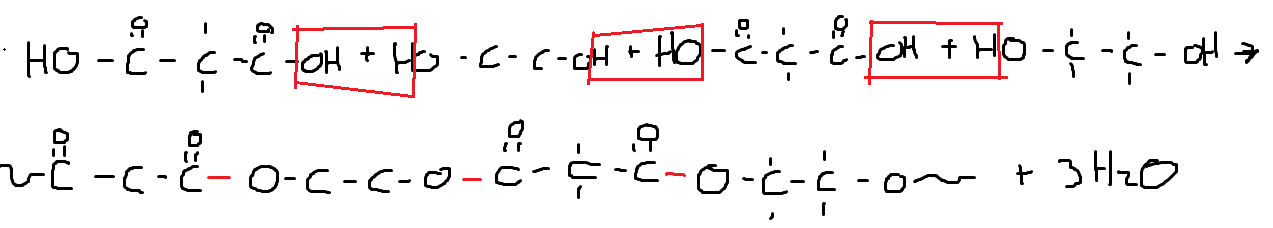 HO - C - C - C - OH + HO - C - C - OH + HO - C - C - C - OH + HO - C - C - OH →
~ C - C - C - O - C - C - O - C - C - C - O - C - C - O ~ + 3H2O
O O O O
O O O O